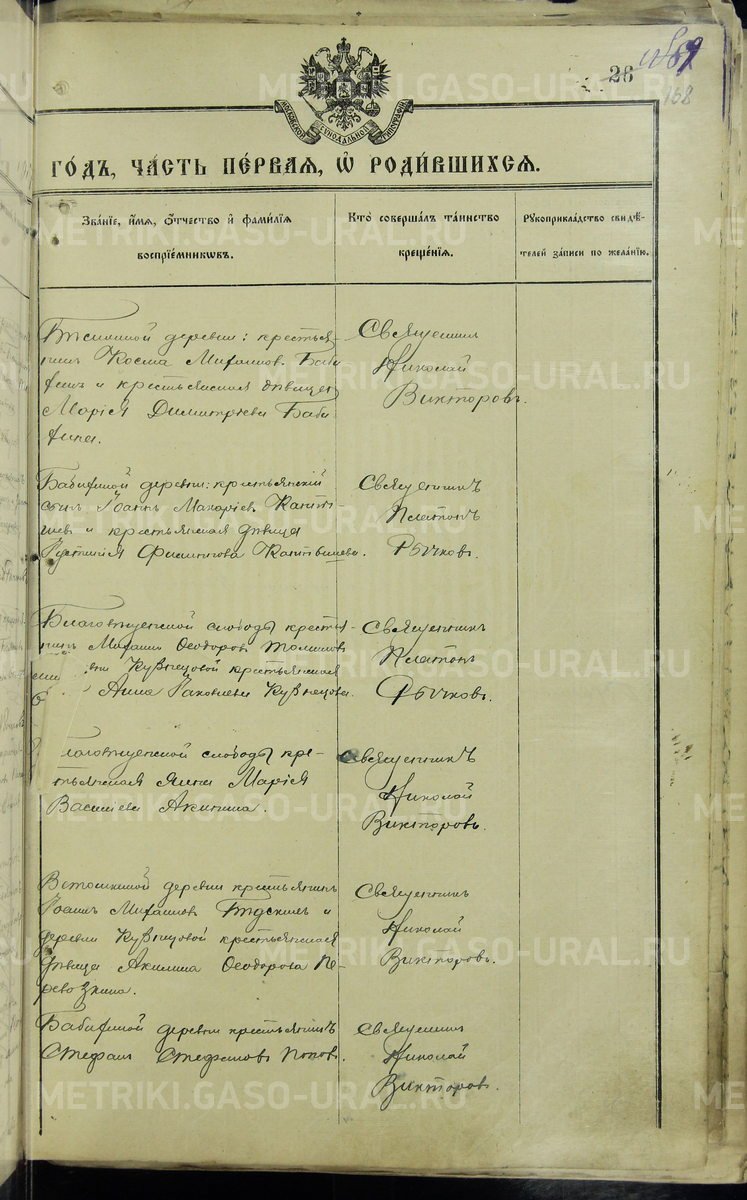 26
158
МОСКОВСКОЙ СѴНОДАЛЬНОЙ ТИПОГРАФІИ
ГО́ДЪ, ЧА́СТЬ ПЕ́РВАЯ, Ѽ РОДИ́ВШИХСЯ.
Зва́ніе, и́мя, о́тчество и҆ фами́лія
воспріе́мниковъ.
Кто̀ соверша́лъ та́инство
креще́нія.
Рꙋкоприкла́дство свидѣ́-
телей за́писи по жела́нію.
деревни: крестья-
нинъ Косма Михаиловъ Баби
и крестьянская дѣвица
Марія Димитріева Баби
Священник
Николай
Викторовъ.
деревни: крестьянскій
сынъ Іоаннъ Макаріев
и крестьянская дѣвица
Филиппова
Священникъ
Платонъ
Рычковъ.
Благовѣщенской слободы крестья-
нинъ Михаилъ Ѳеодоровъ
Кузнецовой крестьянская
Анна Іаковлева Кузнецова.
Священникъ
Платонъ
Рычковъ.
слободы кре-
стьянская жена Марія
Василіева Акинина.
Священникъ
Николай
Викторовъ.
деревни крестьянинъ
Іоаннъ Михаиловъ и
деревни Кузнецовой крестьянская
дѣвица Акилина Ѳеодорова Пе-
ревозкина.
Священникъ
Николай
Викторовъ.
деревни крестьянинъ
Стефанъ Стефановъ Поповъ.
Священник
Николай
Викторовъ.
METRIKI.GASO-URAL.RU